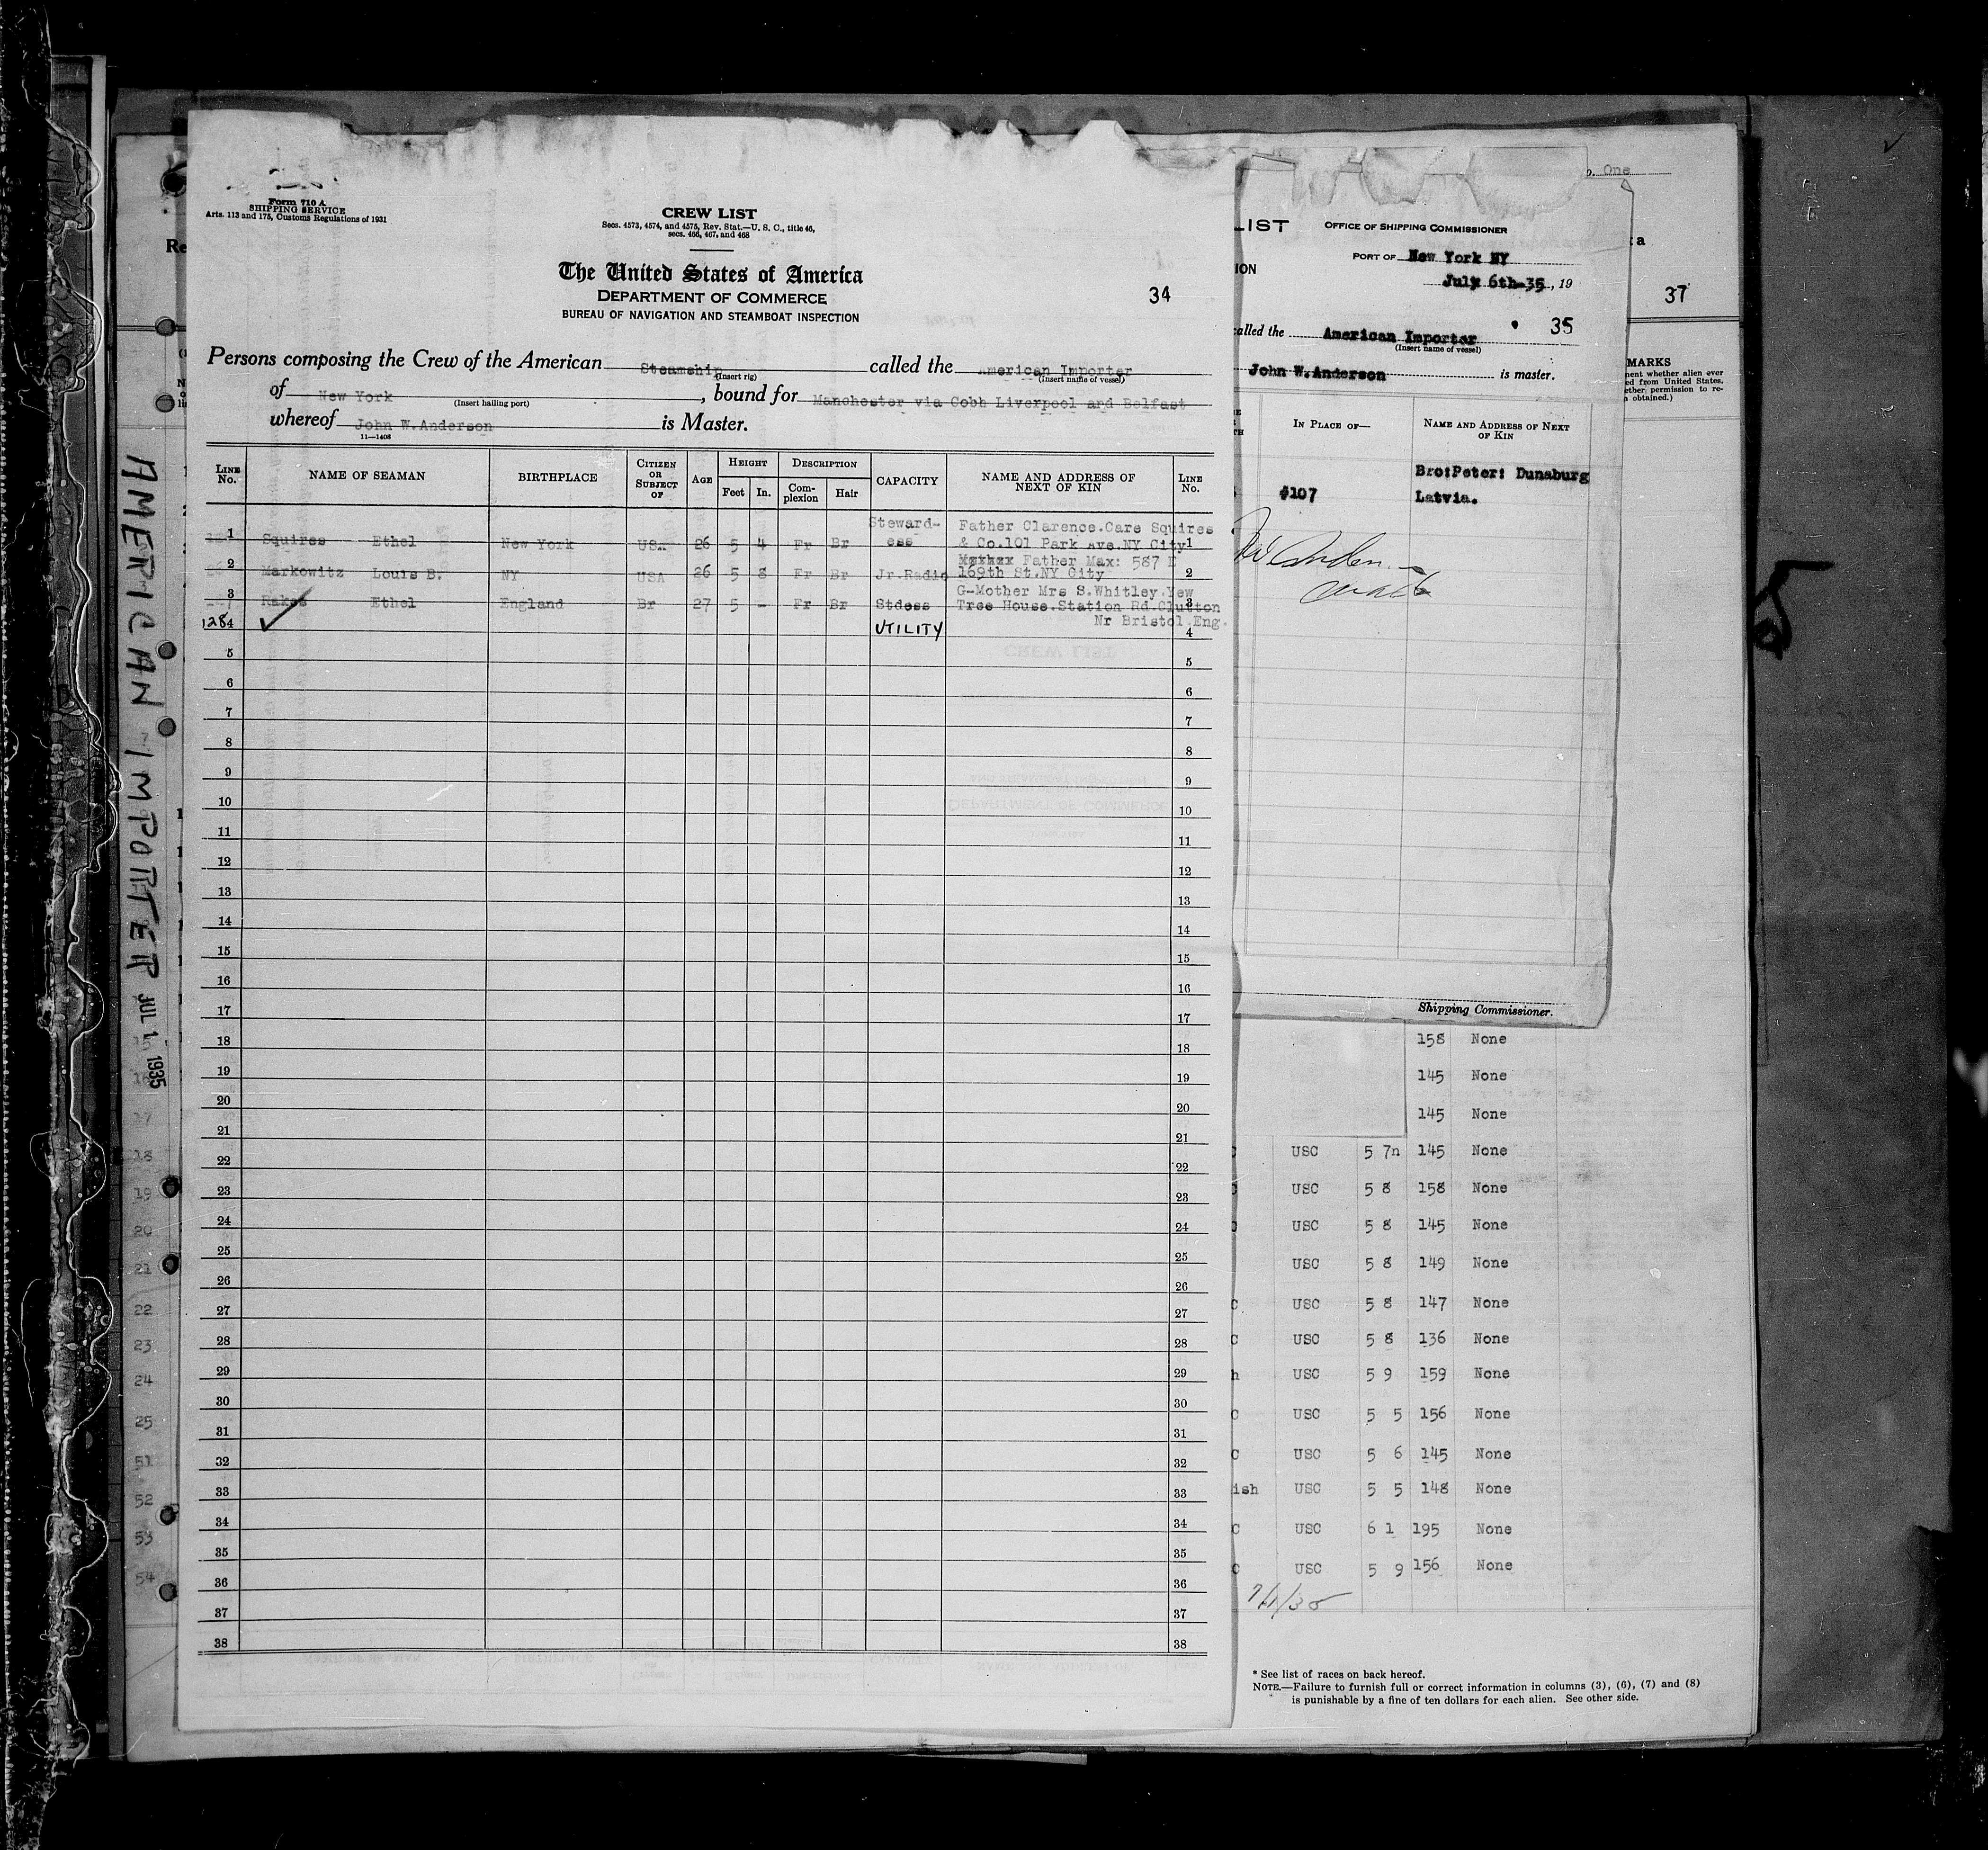 Form 710 A
SHIPPING SERVICE
Arts. 113 and 175, Customs Regulations of 1931
CREW LIST
Secs. 4573, 4574, and 4575, Rev. Stat.—U. S. C., title 46,
secs. 466, 467, and 468
The United States of America
DEPARTMENT OF COMMERCE
BUREAU OF NAVIGATION AND STEAMBOAT INSPECTION
34
Persons composing the Crew of the American Steamship called the American Importer
(Insert rig) (Insert name of vessel)
of New York, bound for Manchester via Cobh Liverpool and Belfast
(Insert hailing port)
whereof John W.Anderson is Master.
11—1408
LINE No. NAME OF SEAMAN BIRTHPLACE CITIZEN OR SUBJECT OF AGE HEIGHT Feet In. DESCRIPTION Complexion Hair CAPACITY NAME AND ADDRESS OF NEXT OF KIN LINE No.
1 Squires Ethel New York USA 26 5 4 Fr Br Steward-ess Father Clarence.Care Squires & Co.101 Park Ave.NY City 1
2 Markowitz Louis B. NY USA 26 5 8 Fr Br Jr.Radio Father Max: 587 E 169th St.NY City 2
3 Rakes Ethel England Br 27 5 - Fr Br Stdess G-Mother Mrs S.Whitley.Yew Tree House.Station Rd.Clutton 3
Nr Bristol.Eng.
128 4 UTILITY 4
5 5
6 6
7 7
8 8
9 9
10 10
11 11
12 12
13 13
14 14
15 15
16 16
17 17
18 18
19 19
20 20
21 21
22 22
23 23
24 24
25 25
26 26
27 27
28 28
29 29
30 30
31 31
32 32
33 33
34 34
35 35
36 36
37 37
38 38
AMERICAN IMPORTER JUL 1 1935
Re
17
18
19
20
21
22
23
24
25
51
52
53
54
LIST OFFICE OF SHIPPING COMMISSIONER
ION PORT OF New York NY
July 6th-35, 19
35
called the American Importer
(Insert name of vessel)
John W.Anderson is master.
IN PLACE OF— NAME AND ADDRESS OF NEXT OF KIN
#107 Bro:Peter: Dunaburg
Latvia.
Shipping Commissioner.
One
37
MARKS
ment whether alien ever
ed from United States,
ether permission to re-
obtained.)
158 None
145 None
145 None
USC 5 7n 145 None
USC 5 8 158 None
USC 5 8 145 None
USC 5 8 149 None
USC 5 8 147 None
USC 5 8 136 None
h USC 5 9 159 None
USC 5 5 156 None
USC 5 6 145 None
ish USC 5 5 148 None
USC 6 1 195 None
USC 5 9 156 None
* See list of races on back hereof.
NOTE.—Failure to furnish full or correct information in columns (3), (6), (7) and (8)
is punishable by a fine of ten dollars for each alien. See other side.